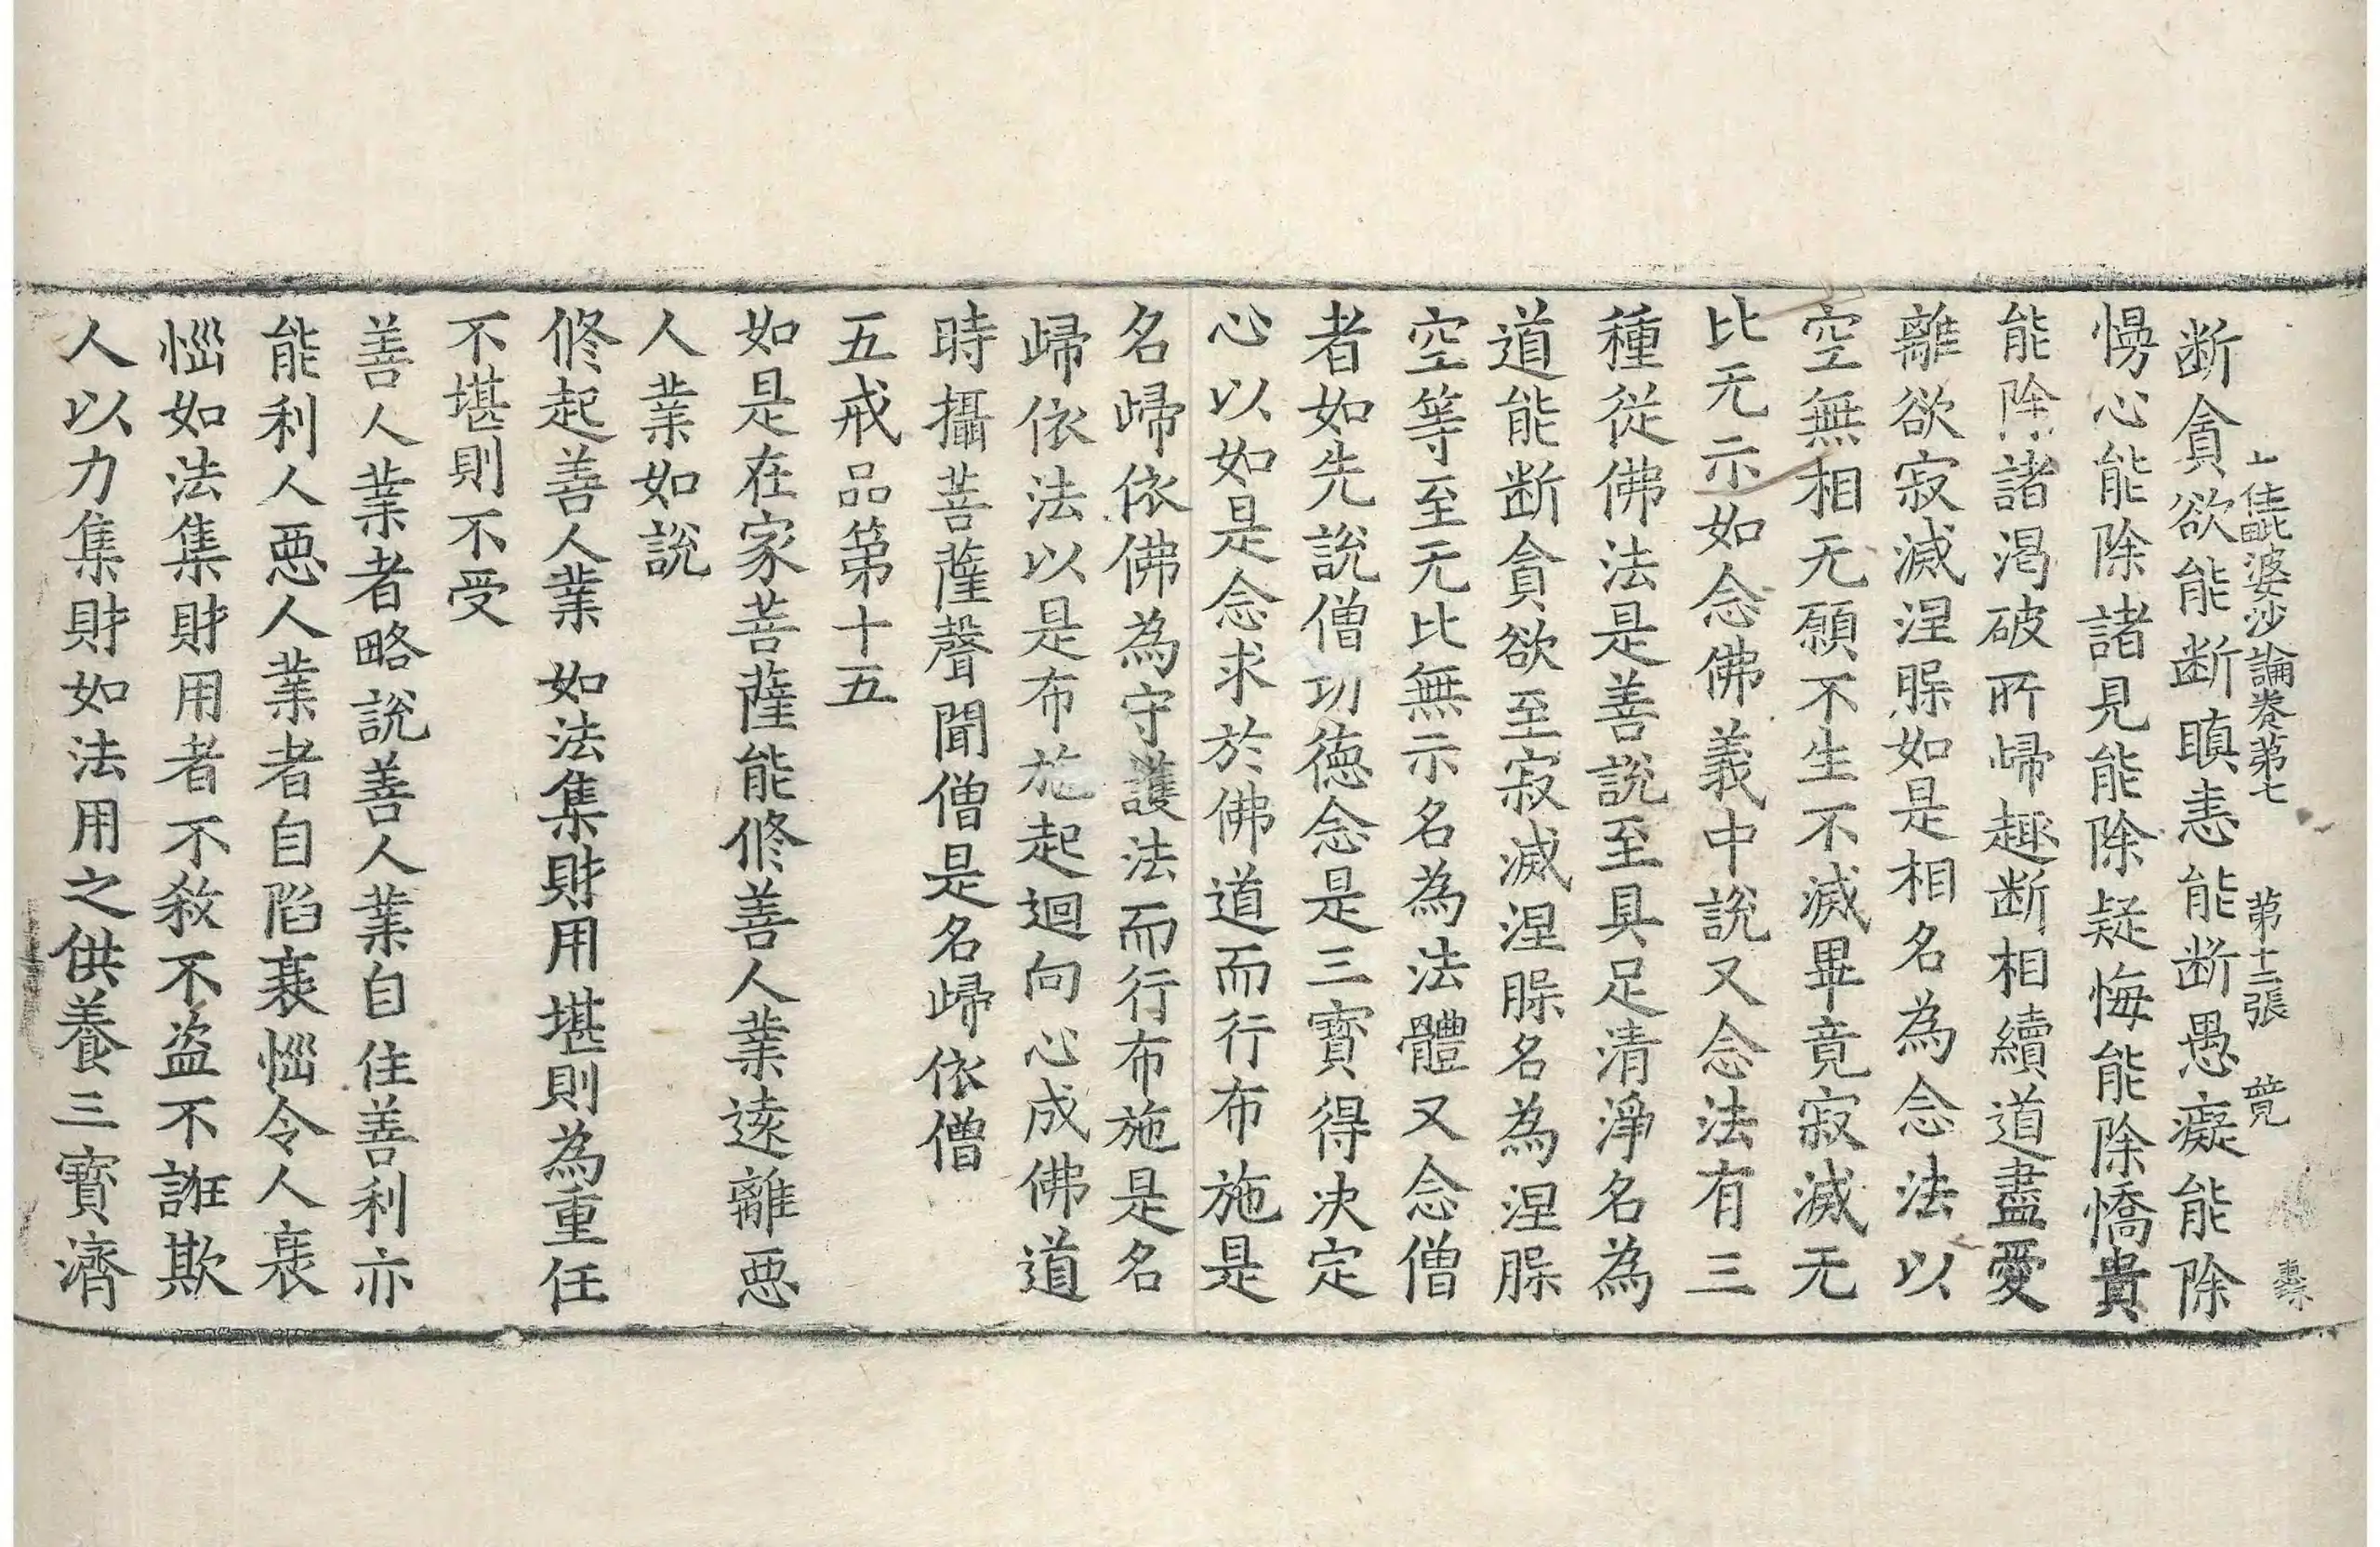 十住毗婆沙論卷第七 第十三張 竟
断貪欲能断瞋恚能断愚癡能除
慢心能除諸見能除疑悔能除憍貴
能除諸渴破所歸趣断相續道盡愛
離欲寂滅涅槃如是相名為念法以
空無相无願不生不滅畢竟寂滅无
比无示如念佛義中說又念法有三
種從佛法是善說至具足清淨名為
道能断貪欲至寂滅涅槃名為涅槃
空等至无比無示名為法體又念僧
者如先說僧功德念是三寶得决定
心以如是念求於佛道而行布施是
名歸依佛為守護法而行布施是名
歸依法以是布施起迴向心成佛道
時攝菩薩聲聞僧是名歸依僧
五戒品第十五
如是在家菩薩能修善人業遠離惡
人業如說
修起善人業 如法集財用 堪則為重任
不堪則不受
善人業者略說善人業自住善利亦
能利人惡人業者自陷衰惱令人衰
惱如法集財用者不煞不盗不誑欺
人以力集財如法用之供養三寶濟